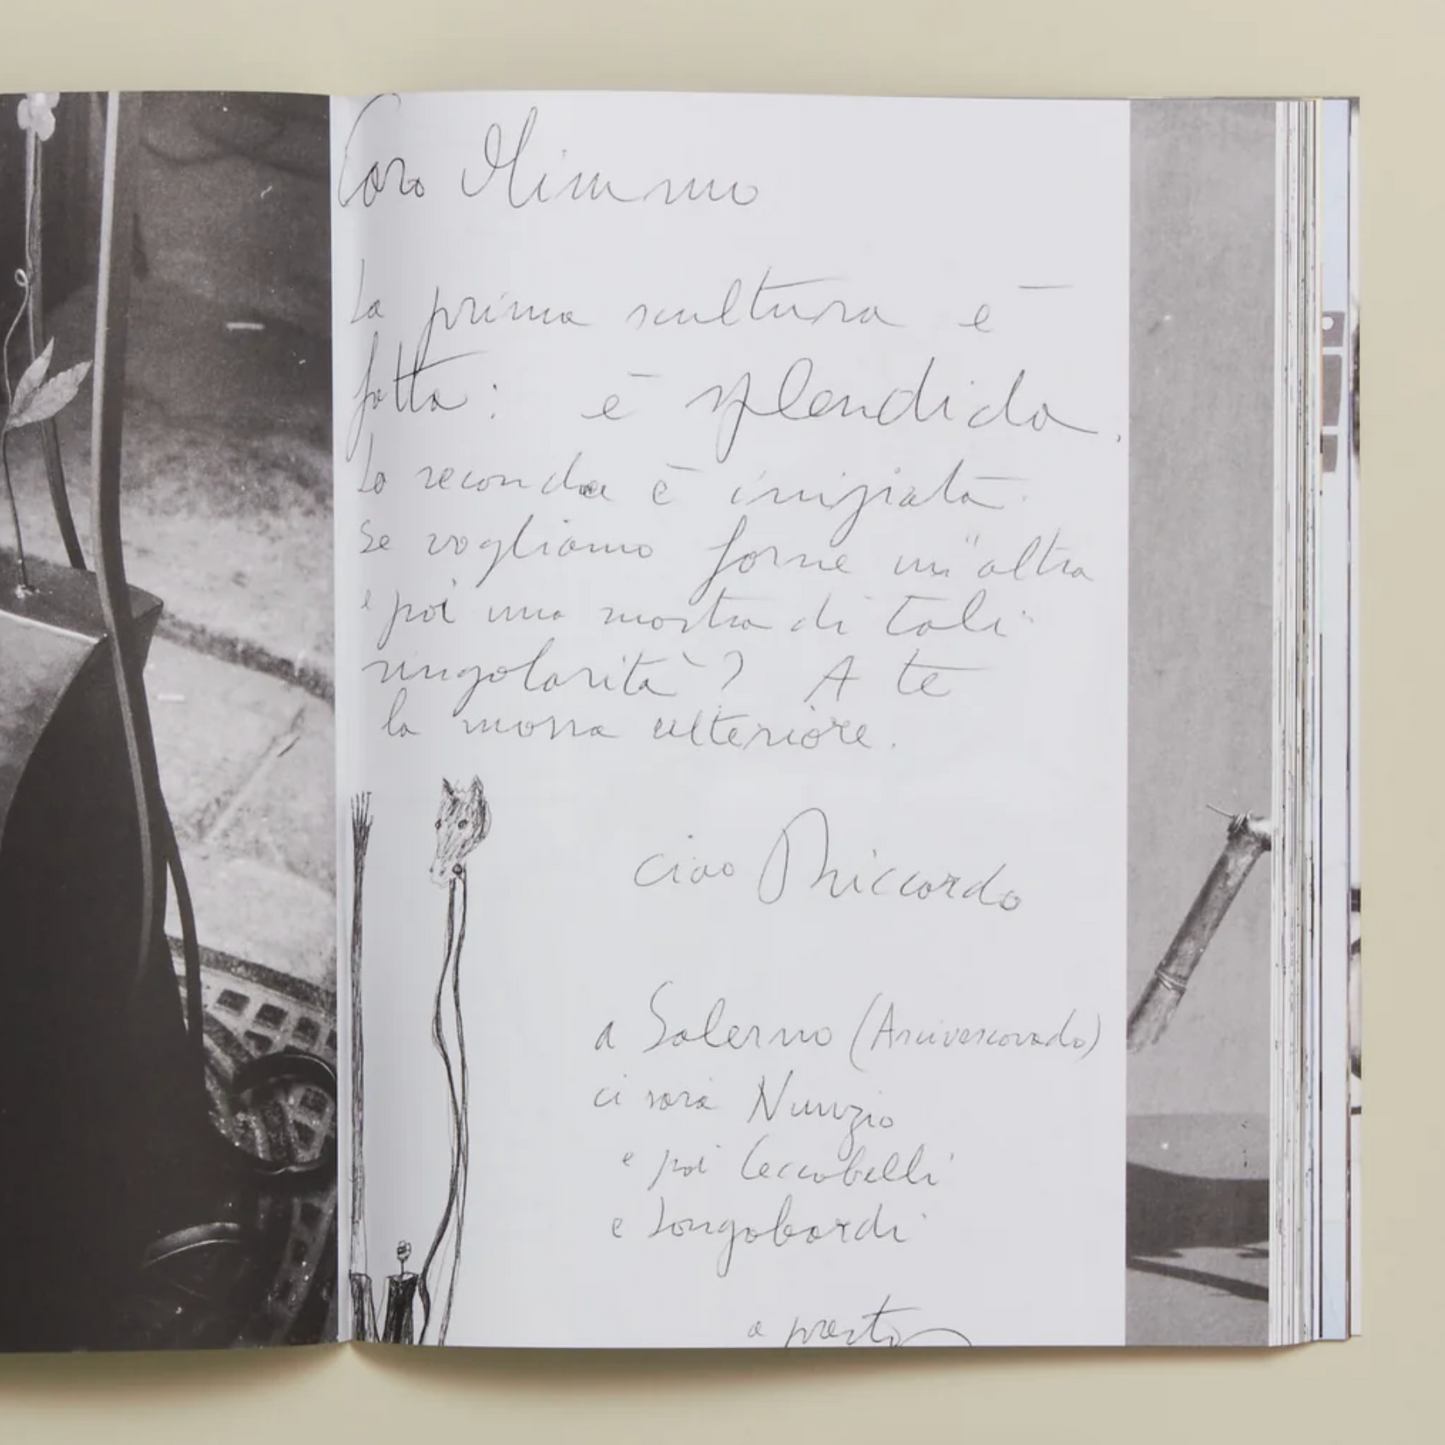 Caro Mimmo
La prima scultura è
fatta: è splendida.
La seconda è iniziata.
Se vogliamo farne un'altra
e poi una mostra di tali
singolarità? A te
la mossa ulteriore.
ciao Riccardo
a Salerno (Arcivescovado)
ci sarà Nunzio
e poi Ceccobelli
e Longobardi
a presto